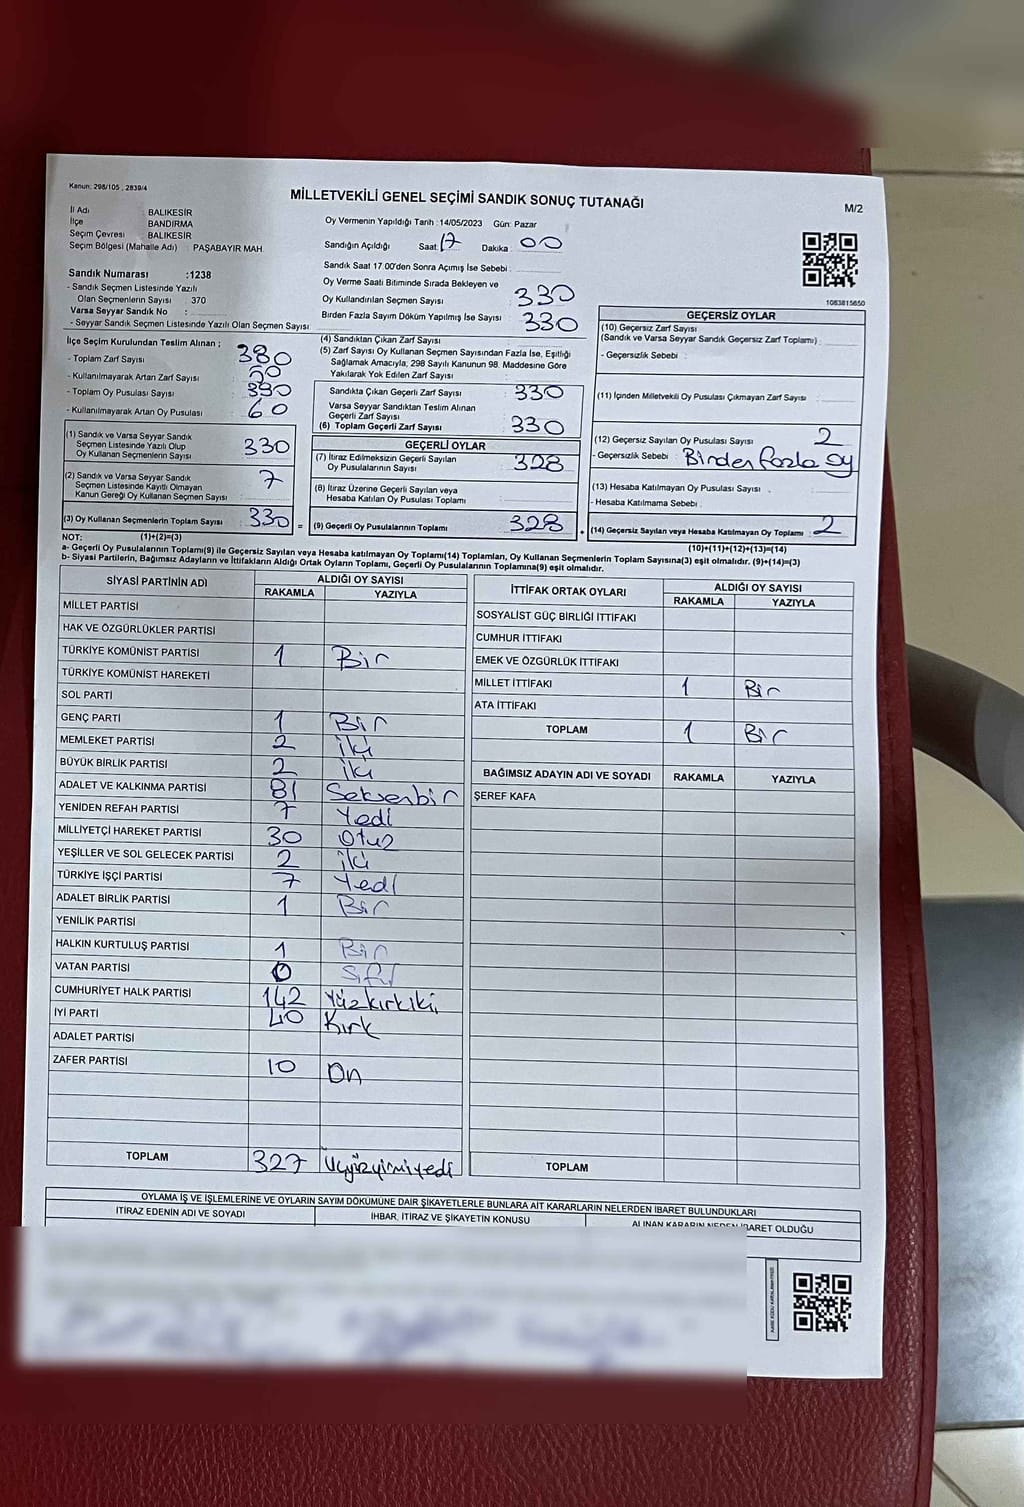 Kanun: 298/105 , 2839/4
MİLLETVEKİLİ GENEL SEÇİMİ SANDIK SONUÇ TUTANAĞI
M/2
İl Adı BALIKESİR
İlçe BANDIRMA
Seçim Çevresi BALIKESİR
Seçim Bölgesi (Mahalle Adı) : PAŞABAYIR MAH.
Sandık Numarası :1238
- Sandık Seçmen Listesinde Yazılı
Olan Seçmenlerin Sayısı : 370
Varsa Seyyar Sandık No :
- Seyyar Sandık Seçmen Listesinde Yazılı Olan Seçmen Sayısı :
Oy Vermenin Yapıldığı Tarih :14/05/2023 Gün: Pazar
Sandığın Açıldığı Saat: 17 Dakika : 00
Sandık Saat 17.00'den Sonra Açımış İse Sebebi :
Oy Verme Saati Bitiminde Sırada Bekleyen ve
Oy Kullandırılan Seçmen Sayısı : 330
Birden Fazla Sayım Döküm Yapılmış İse Sayısı : 330
1083815650
İlçe Seçim Kurulundan Teslim Alınan ;
- Toplam Zarf Sayısı : 380
- Kullanılmayarak Artan Zarf Sayısı : 50
- Toplam Oy Pusulası Sayısı : 390
- Kullanılmayarak Artan Oy Pusulası : 60
(1) Sandık ve Varsa Seyyar Sandık
Seçmen Listesinde Yazılı Olup
Oy Kullanan Seçmenlerin Sayısı : 330
(2) Sandık ve Varsa Seyyar Sandık
Seçmen Listesinde Kayıtlı Olmayan
Kanun Gereği Oy Kullanan Seçmen Sayısı : 7
(3) Oy Kullanan Seçmenlerin Toplam Sayısı : 330
(4) Sandıktan Çıkan Zarf Sayısı :
(5) Zarf Sayısı Oy Kullanan Seçmen Sayısından Fazla İse, Eşitliği
Sağlamak Amacıyla, 298 Sayılı Kanunun 98. Maddesine Göre
Yakılarak Yok Edilen Zarf Sayısı :
Sandıkta Çıkan Geçerli Zarf Sayısı : 330
Varsa Seyyar Sandıktan Teslim Alınan
Geçerli Zarf Sayısı
(6) Toplam Geçerli Zarf Sayısı : 330
GEÇERLİ OYLAR
(7) İtiraz Edilmeksizin Geçerli Sayılan
Oy Pusulalarının Sayısı : 328
(8) İtiraz Üzerine Geçerli Sayılan veya
Hesaba Katılan Oy Pusulası Toplamı :
= (9) Geçerli Oy Pusulalarının Toplamı : 328
GEÇERSİZ OYLAR
(10) Geçersiz Zarf Sayısı
(Sandık ve Varsa Seyyar Sandık Geçersiz Zarf Toplamı) :
- Geçersizlik Sebebi :
(11) İçinden Milletvekili Oy Pusulası Çıkmayan Zarf Sayısı :
(12) Geçersiz Sayılan Oy Pusulası Sayısı : 2
- Geçersizlik Sebebi : Birden fazla oy
(13) Hesaba Katılmayan Oy Pusulası Sayısı :
- Hesaba Katılmama Sebebi :
+ (14) Geçersiz Sayılan veya Hesaba Katılmayan Oy Toplamı : 2
NOT: (1)+(2)=(3)
(10)+(11)+(12)+(13)=(14)
a- Geçerli Oy Pusulalarının Toplamı(9) ile Geçersiz Sayılan veya Hesaba katılmayan Oy Toplamı(14) Toplamları, Oy Kullanan Seçmenlerin Toplam Sayısına(3) eşit olmalıdır. (9)+(14)=(3)
b- Siyasi Partilerin, Bağımsız Adayların ve İttifakların Aldığı Ortak Oyların Toplamı, Geçerli Oy Pusulalarının Toplamına(9) eşit olmalıdır.
SİYASİ PARTİNİN ADI ALDIĞI OY SAYISI
RAKAMLA YAZIYLA
MİLLET PARTİSİ
HAK VE ÖZGÜRLÜKLER PARTİSİ
TÜRKİYE KOMÜNİST PARTİSİ 1 Bir
TÜRKİYE KOMÜNİST HAREKETİ
SOL PARTİ
GENÇ PARTİ 1 Bir
MEMLEKET PARTİSİ 2 iki
BÜYÜK BİRLİK PARTİSİ 2 iki
ADALET VE KALKINMA PARTİSİ 81 Seksenbir
YENİDEN REFAH PARTİSİ 7 Yedi
MİLLİYETÇİ HAREKET PARTİSİ 30 Otuz
YEŞİLLER VE SOL GELECEK PARTİSİ 2 iki
TÜRKİYE İŞÇİ PARTİSİ 7 Yedi
ADALET BİRLİK PARTİSİ 1 Bir
YENİLİK PARTİSİ
HALKIN KURTULUŞ PARTİSİ 1 Bir
VATAN PARTİSİ 0 Sıfır
CUMHURİYET HALK PARTİSİ 142 Yüzkırkiki
İYİ PARTİ 40 Kırk
ADALET PARTİSİ
ZAFER PARTİSİ 10 On
TOPLAM 327 Üçyüzyirmiyedi
İTTİFAK ORTAK OYLARI ALDIĞI OY SAYISI
RAKAMLA YAZIYLA
SOSYALİST GÜÇ BİRLİĞİ İTTİFAKI
CUMHUR İTTİFAKI
EMEK VE ÖZGÜRLÜK İTTİFAKI
MİLLET İTTİFAKI 1 Bir
ATA İTTİFAKI
TOPLAM 1 Bir
BAĞIMSIZ ADAYIN ADI VE SOYADI RAKAMLA YAZIYLA
ŞEREF KAFA
TOPLAM
OYLAMA İŞ VE İŞLEMLERİNE VE OYLARIN SAYIM DÖKÜMÜNE DAİR ŞİKAYETLERLE BUNLARA AİT KARARLARIN NELERDEN İBARET BULUNDUKLARI
İTİRAZ EDENİN ADI VE SOYADI İHBAR, İTİRAZ VE ŞİKAYETİN KONUSU ALINAN KARARIN NEDEN İBARET OLDUĞU